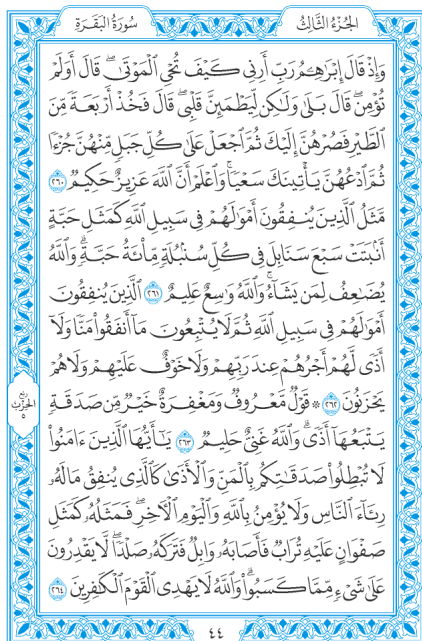 الجُزْءُ الثَّالِثُ
سُورَةُ البَقَرَةِ
وَإِذْ قَالَ إِبْرَٰهِـۧمُ رَبِّ أَرِنِى كَيْفَ تُحْىِ ٱلْمَوْتَىٰ ۖ قَالَ أَوَلَمْ
تُؤْمِن ۖ قَالَ بَلَىٰ وَلَٰكِن لِّيَطْمَئِنَّ قَلْبِى ۖ قَالَ فَخُذْ أَرْبَعَةً مِّنَ
ٱلطَّيْرِ فَصُرْهُنَّ إِلَيْكَ ثُمَّ ٱجْعَلْ عَلَىٰ كُلِّ جَبَلٍ مِّنْهُنَّ جُزْءًا
ثُمَّ ٱدْعُهُنَّ يَأْتِينَكَ سَعْيًا ۚ وَٱعْلَمْ أَنَّ ٱللَّهَ عَزِيزٌ حَكِيمٌ ٢٦٠
مَّثَلُ ٱلَّذِينَ يُنفِقُونَ أَمْوَٰلَهُمْ فِى سَبِيلِ ٱللَّهِ كَمَثَلِ حَبَّةٍ
أَنۢبَتَتْ سَبْعَ سَنَابِلَ فِى كُلِّ سُنۢبُلَةٍ مِّا۟ئَةُ حَبَّةٍ ۗ وَٱللَّهُ
يُضَٰعِفُ لِمَن يَشَآءُ ۗ وَٱللَّهُ وَٰسِعٌ عَلِيمٌ ٢٦١ ٱلَّذِينَ يُنفِقُونَ
أَمْوَٰلَهُمْ فِى سَبِيلِ ٱللَّهِ ثُمَّ لَا يُتْبِعُونَ مَآ أَنفَقُوا۟ مَنًّا وَلَآ
أَذًى ۙ لَّهُمْ أَجْرُهُمْ عِندَ رَبِّهِمْ وَلَا خَوْفٌ عَلَيْهِمْ وَلَا هُمْ
يَحْزَنُونَ ٢٦٢ ۞ قَوْلٌ مَّعْرُوفٌ وَمَغْفِرَةٌ خَيْرٌ مِّن صَدَقَةٍ
يَتْبَعُهَآ أَذًى ۗ وَٱللَّهُ غَنِىٌّ حَلِيمٌ ٢٦٣ يَٰٓأَيُّهَا ٱلَّذِينَ ءَامَنُوا۟
لَا تُبْطِلُوا۟ صَدَقَٰتِكُم بِٱلْمَنِّ وَٱلْأَذَىٰ كَٱلَّذِى يُنفِقُ مَالَهُۥ
رِئَآءَ ٱلنَّاسِ وَلَا يُؤْمِنُ بِٱللَّهِ وَٱلْيَوْمِ ٱلْءَاخِرِ ۖ فَمَثَلُهُۥ كَمَثَلِ
صَفْوَانٍ عَلَيْهِ تُرَابٌ فَأَصَابَهُۥ وَابِلٌ فَتَرَكَهُۥ صَلْدًا ۖ لَّا يَقْدِرُونَ
عَلَىٰ شَىْءٍ مِّمَّا كَسَبُوا۟ ۗ وَٱللَّهُ لَا يَهْدِى ٱلْقَوْمَ ٱلْكَٰفِرِينَ ٢٦٤
رُبع
الحِزْب
٥
٤٤